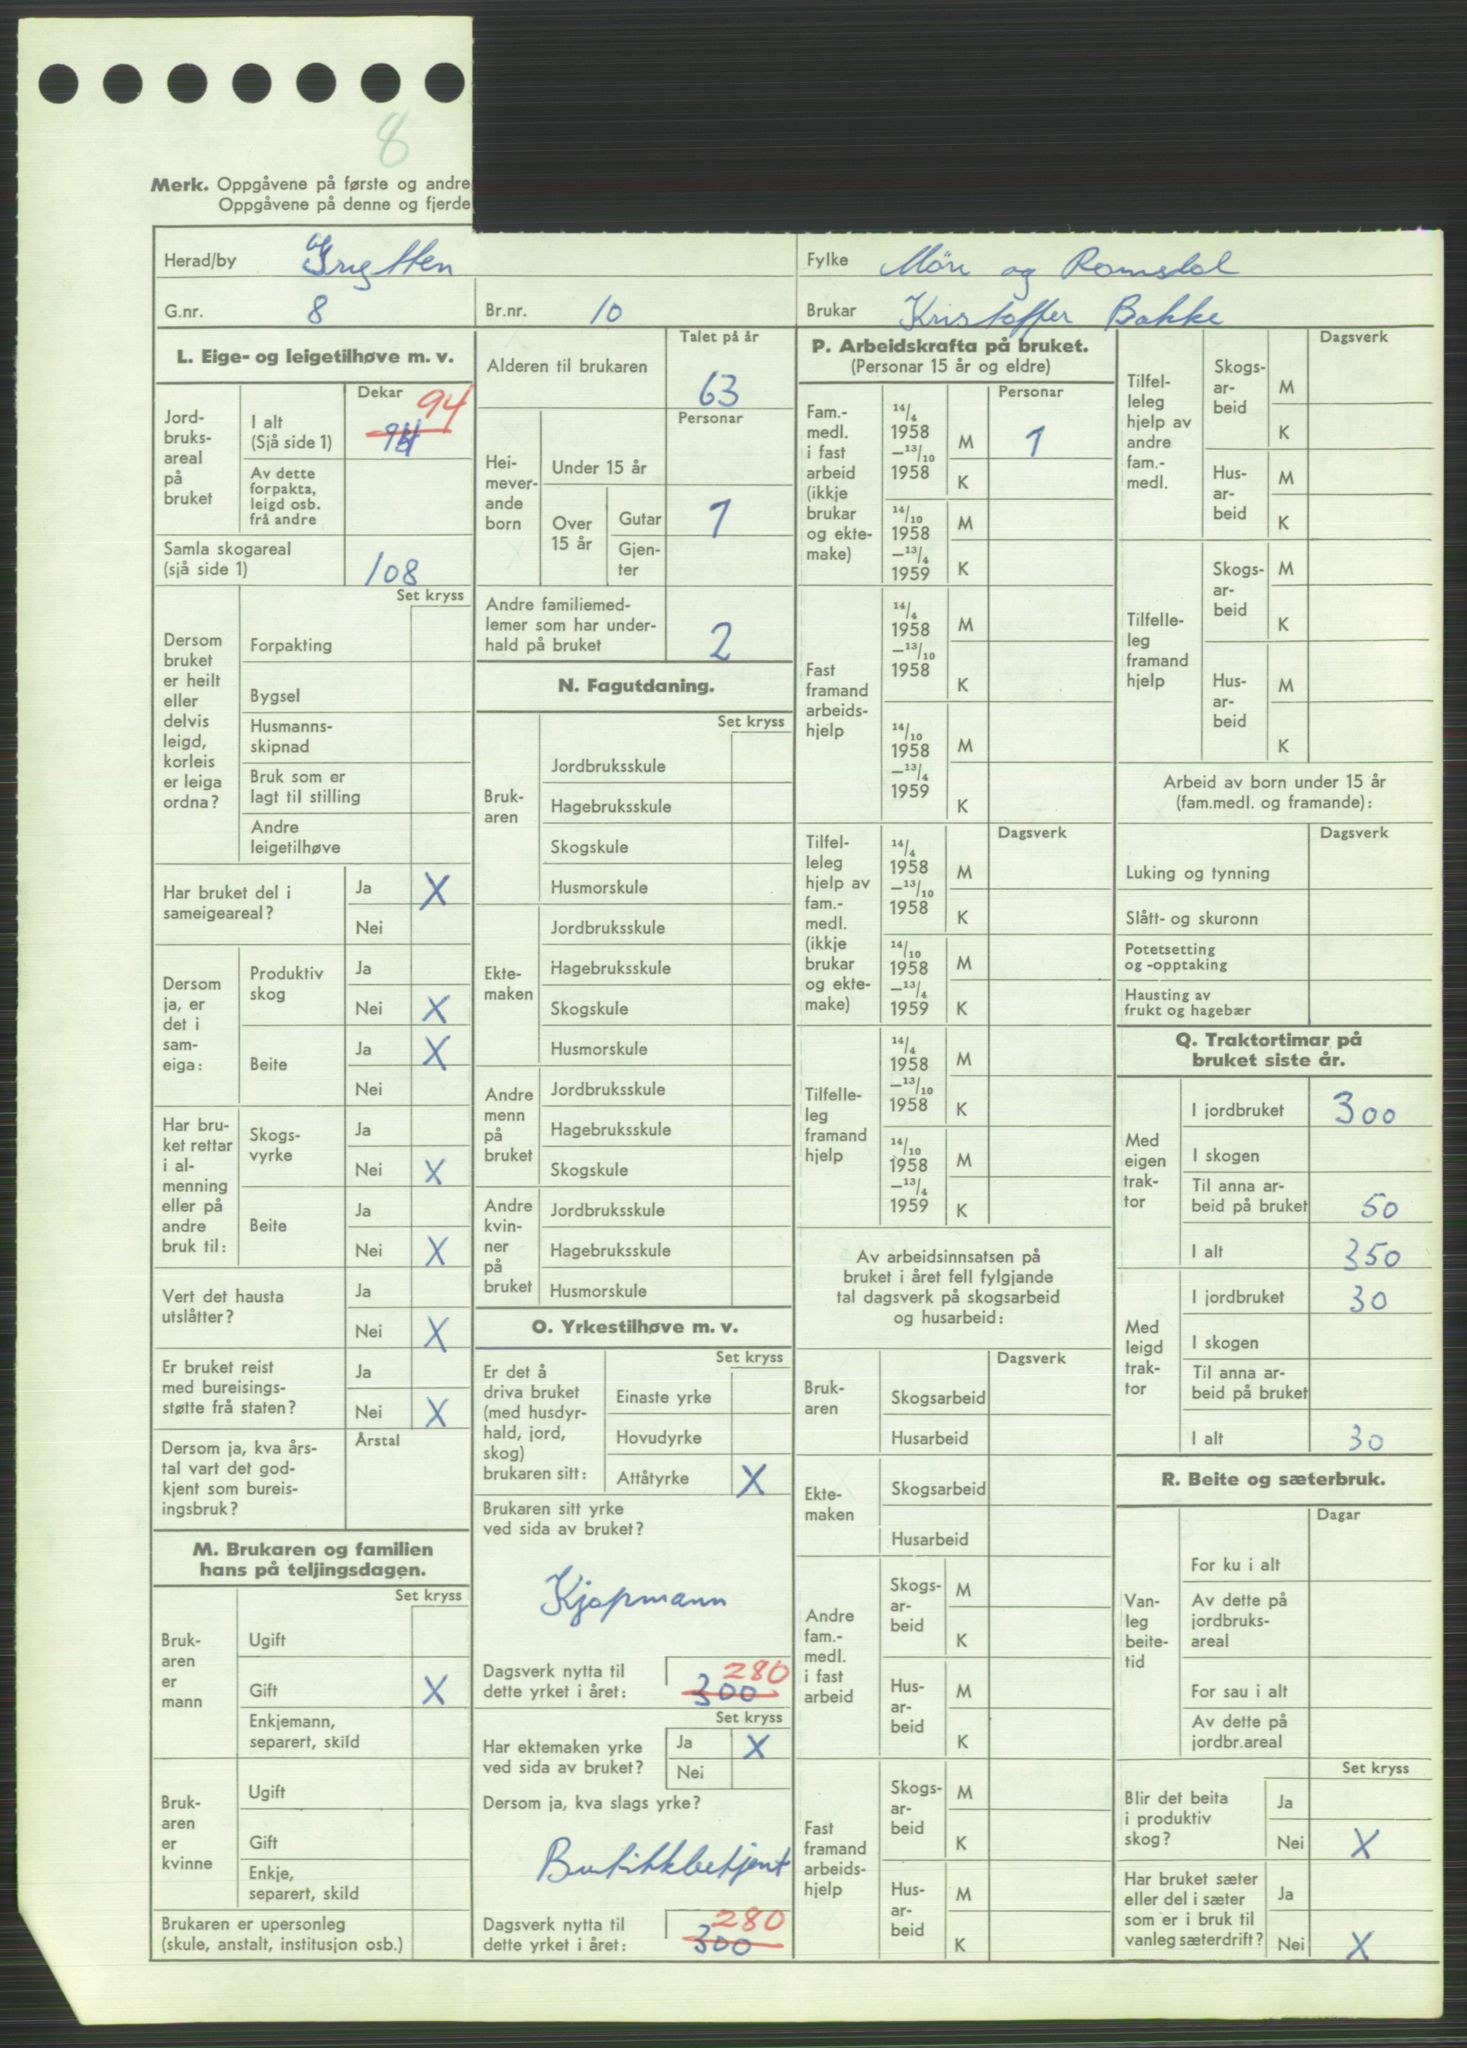 8
Merk. Oppgåvene på første og andre
Oppgåvene på denne og fjerde
Herad/by Grytten
Fylke Møre og Romsdal
G.nr. 8
Br.nr. 10
Brukar Kristoffer Bakke
L. Eige- og leigetilhøve m. v.
Jord-
bruks-
areal
på
bruket
I alt
(Sjå side 1)
Dekar
94
94
Av dette
forpakta,
leigd osb.
frå andre
Samla skogareal
(sjå side 1) 108
Set kryss
Dersom
bruket
er heilt
eller
delvis
leigd,
korleis
er leiga
ordna?
Forpakting
Bygsel
Husmanns-
skipnad
Bruk som er
lagt til stilling
Andre
leigetilhøve
Har bruket del i
sameigeareal?
Ja X
Nei
Dersom
ja, er
det i
sam-
eiga:
Produktiv
skog
Ja
Nei X
Beite
Ja X
Nei
Har bru-
ket rettar
i al-
menning
eller på
andre
bruk til:
Skogs-
vyrke
Ja
Nei X
Beite
Ja
Nei X
Vert det hausta
utslåtter?
Ja
Nei X
Er bruket reist
med bureisings-
støtte frå staten?
Ja
Nei X
Dersom ja, kva års-
tal vart det god-
kjent som bureis-
ingsbruk?
Årstal
M. Brukaren og familien
hans på teljingsdagen.
Set kryss
Bruk-
aren
er
mann
Ugift
Gift X
Enkjemann,
separert, skild
Bruk-
aren
er
kvinne
Ugift
Gift
Enkje,
separert, skild
Brukaren er upersonleg
(skule, anstalt, institusjon osb.)
Talet på år
Alderen til brukaren 63
Personar
Hei-
mever-
ande
born
Under 15 år
Over
15 år
Gutar 1
Gjen-
ter
Andre familiemed-
lemer som har under-
hald på bruket 2
N. Fagutdaning.
Set kryss
Bruk-
aren
Jordbruksskule
Hagebruksskule
Skogskule
Husmorskule
Ekte-
maken
Jordbruksskule
Hagebruksskule
Skogskule
Husmorskule
Andre
menn
på
bruket
Jordbruksskule
Hagebruksskule
Skogskule
Andre
kvin-
ner
på
bruket
Jordbruksskule
Hagebruksskule
Husmorskule
O. Yrkestilhøve m. v.
Set kryss
Er det å
driva bruket
(med husdyr-
hald, jord,
skog)
brukaren sitt:
Einaste yrke
Hovudyrke
Attåtyrke X
Brukaren sitt yrke
ved sida av bruket?
Kjøpmann
Dagsverk nytta til
dette yrket i året:
280
300
Set kryss
Har ektemaken yrke
ved sida av bruket?
Ja X
Nei
Dersom ja, kva slags yrke?
Butikkbetjent
Dagsverk nytta til
dette yrket i året:
280
300
P. Arbeidskrafta på bruket.
(Personar 15 år og eldre)
Personar
Fam.-
medl.
i fast
arbeid
(ikkje
brukar
og ekte-
make)
14/4
1958
–13/10
1958
M 1
K
14/10
1958
–13/4
1959
M
K
Fast
framand
arbeids-
hjelp
14/4
1958
–13/10
1958
M
K
14/10
1958
–13/4
1959
M
K
Dagsverk
Tilfel-
leleg
hjelp av
fam.-
medl.
(ikkje
brukar
og ekte-
make)
14/4
1958
–13/10
1958
M
K
14/10
1958
–13/4
1959
M
K
Tilfelle-
leg
framand
hjelp
14/4
1958
–13/10
1958
M
K
14/10
1958
–13/4
1959
M
K
Av arbeidsinnsatsen på
bruket i året fell fylgjande
tal dagsverk på skogsarbeid
og husarbeid:
Dagsverk
Bruk-
aren
Skogsarbeid
Husarbeid
Ekte-
maken
Skogsarbeid
Husarbeid
Andre
fam.-
medl.
i fast
arbeid
Skogs-
ar-
beid
M
K
Hus-
ar-
beid
M
K
Fast
framand
arbeids-
hjelp
Skogs-
ar-
beid
M
K
Hus-
ar-
beid
M
K
Dagsverk
Tilfel-
leleg
hjelp av
andre
fam.-
medl.
Skogs-
ar-
beid
M
K
Hus-
ar-
beid
M
K
Tilfelle-
leg
framand
hjelp
Skogs-
ar-
beid
M
K
Hus-
ar-
beid
M
K
Arbeid av born under 15 år
(fam.medl. og framande):
Dagsverk
Luking og tynning
Slått- og skuronn
Potetsetting
og -opptaking
Hausting av
frukt og hagebær
Q. Traktortimar på
bruket siste år.
Med
eigen
trak-
tor
I jordbruket 300
I skogen
Til anna ar-
beid på bruket 50
I alt 350
Med
leigd
trak-
tor
I jordbruket 30
I skogen
Til anna ar-
beid på bruket
I alt 30
R. Beite og sæterbruk.
Dagar
Van-
leg
beite-
tid
For ku i alt
Av dette på
jordbruks-
areal
For sau i alt
Av dette på
jordbr.areal
Set kryss
Blir det beita
i produktiv
skog?
Ja
Nei X
Har bruket sæter
eller del i sæter
som er i bruk til
vanleg sæterdrift?
Ja
Nei X